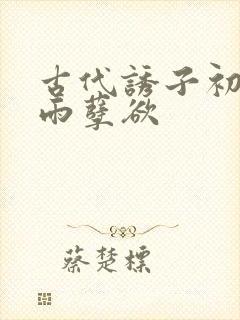 古代誘子初
雨孽欲
蔡楚標